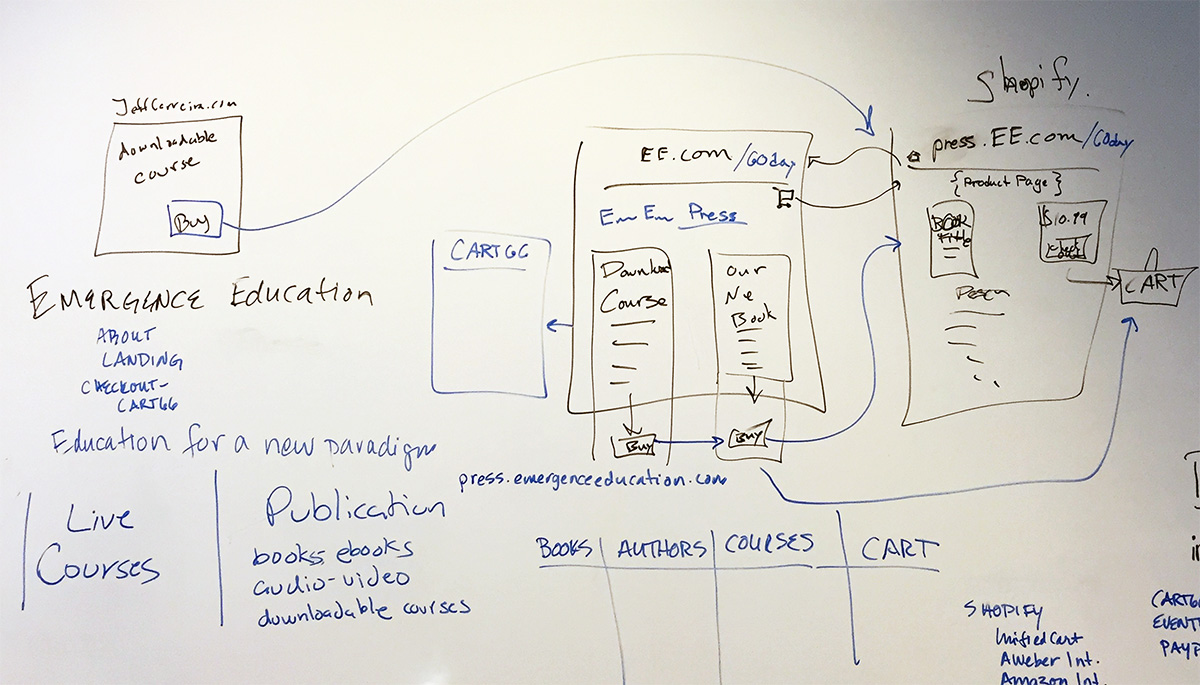 Shopify.
downloadable
course
Buy
EE.com/GOday
press.EE.com/GOday
{Product Page}
Em Em Press
BOOK
Title
$10.99
CART66
Download
Course
Our
Ne
Book
CART
Buy
Buy
EMERGENCE Education
ABOUT
LANDING
CHECKOUT-
CART66
Education for a new paradigm
press.emergenceeducation.com
Live
Courses
Publication
books, ebooks
audio-video
downloadable courses
BOOKS
AUTHORS
COURSES
CART
SHOPIFY
UnifiedCart
AWeber Int.
Amazon Int.
in
CART6
EVENT
PAYP